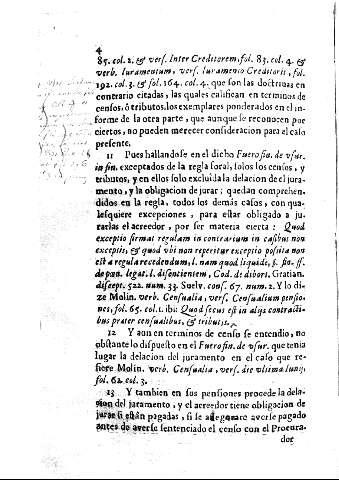 4
85. col. 2. & verſ. Inter Creditorem, fol. 83. col. 4. &
verb. Iuramentum, verſ. Iuramento Creditoris, fol.
192. col. 3. & fol. 164. col. 4. que ſon las doctrinas en
contrario citadas, las quales califican en terminos de
cenſos, ò tributos, los exemplares ponderados en el in-
forme de la otra parte, que aunque ſe reconocen por
ciertos, no pueden merecer conſideracion para el caſo
preſente.
11 Pues hallandoſe en el dicho Fuero fin. de vſur.
in fin. exceptados de la regla foral, ſolos los cenſos, y
tributos, y en ellos ſolo excluida la delacion de el jura-
mento, y la obligacion de jurar; quedan comprehen-
didos en la regla, todos los demás caſos, con qua-
leſquiere excepciones, para eſtar obligado a ju-
rarlas el acreedor, por ſer materia cierta: Quod
exceptio firmat regulam in contrarium in caſibus non
exceptis, & quod vbi non reperitur exceptio poſita non
eſt a regula recedendum, l. nam quod liquide, §. fin. ff.
de pœn. legat. l. diſentientem, Cod. de
Gratian.
diſcept. 522. num. 33. Suelv. conſ. 67. num. 2. Y lo di-
ze Molin. verb. Cenſualia, verſ. Cenſualium penſio-
nes, fol. 65. col. 1. ibi: Quod ſecus eſt in alijs contracti-
bus præter cenſualibus, & tributis.
12 Y aun en terminos de cenſo ſe entendio, no
obſtante lo diſpueſto en el Fuero fin. de vſur. que tenia
lugar la delacion del juramento en el caſo que re-
fiere Molin. verb. Cenſualia, verſ. die vltima Iunij,
fol. 62. col. 3.
13 Y tambien en ſus penſiones procede la dela-
cion del juramento, y el acreedor tiene obligacion de
jurar ſi eſtàn pagadas, ſi ſe aſegurare averſe pagado
antes de averſe ſentenciado el cenſo con el Procura-
dor